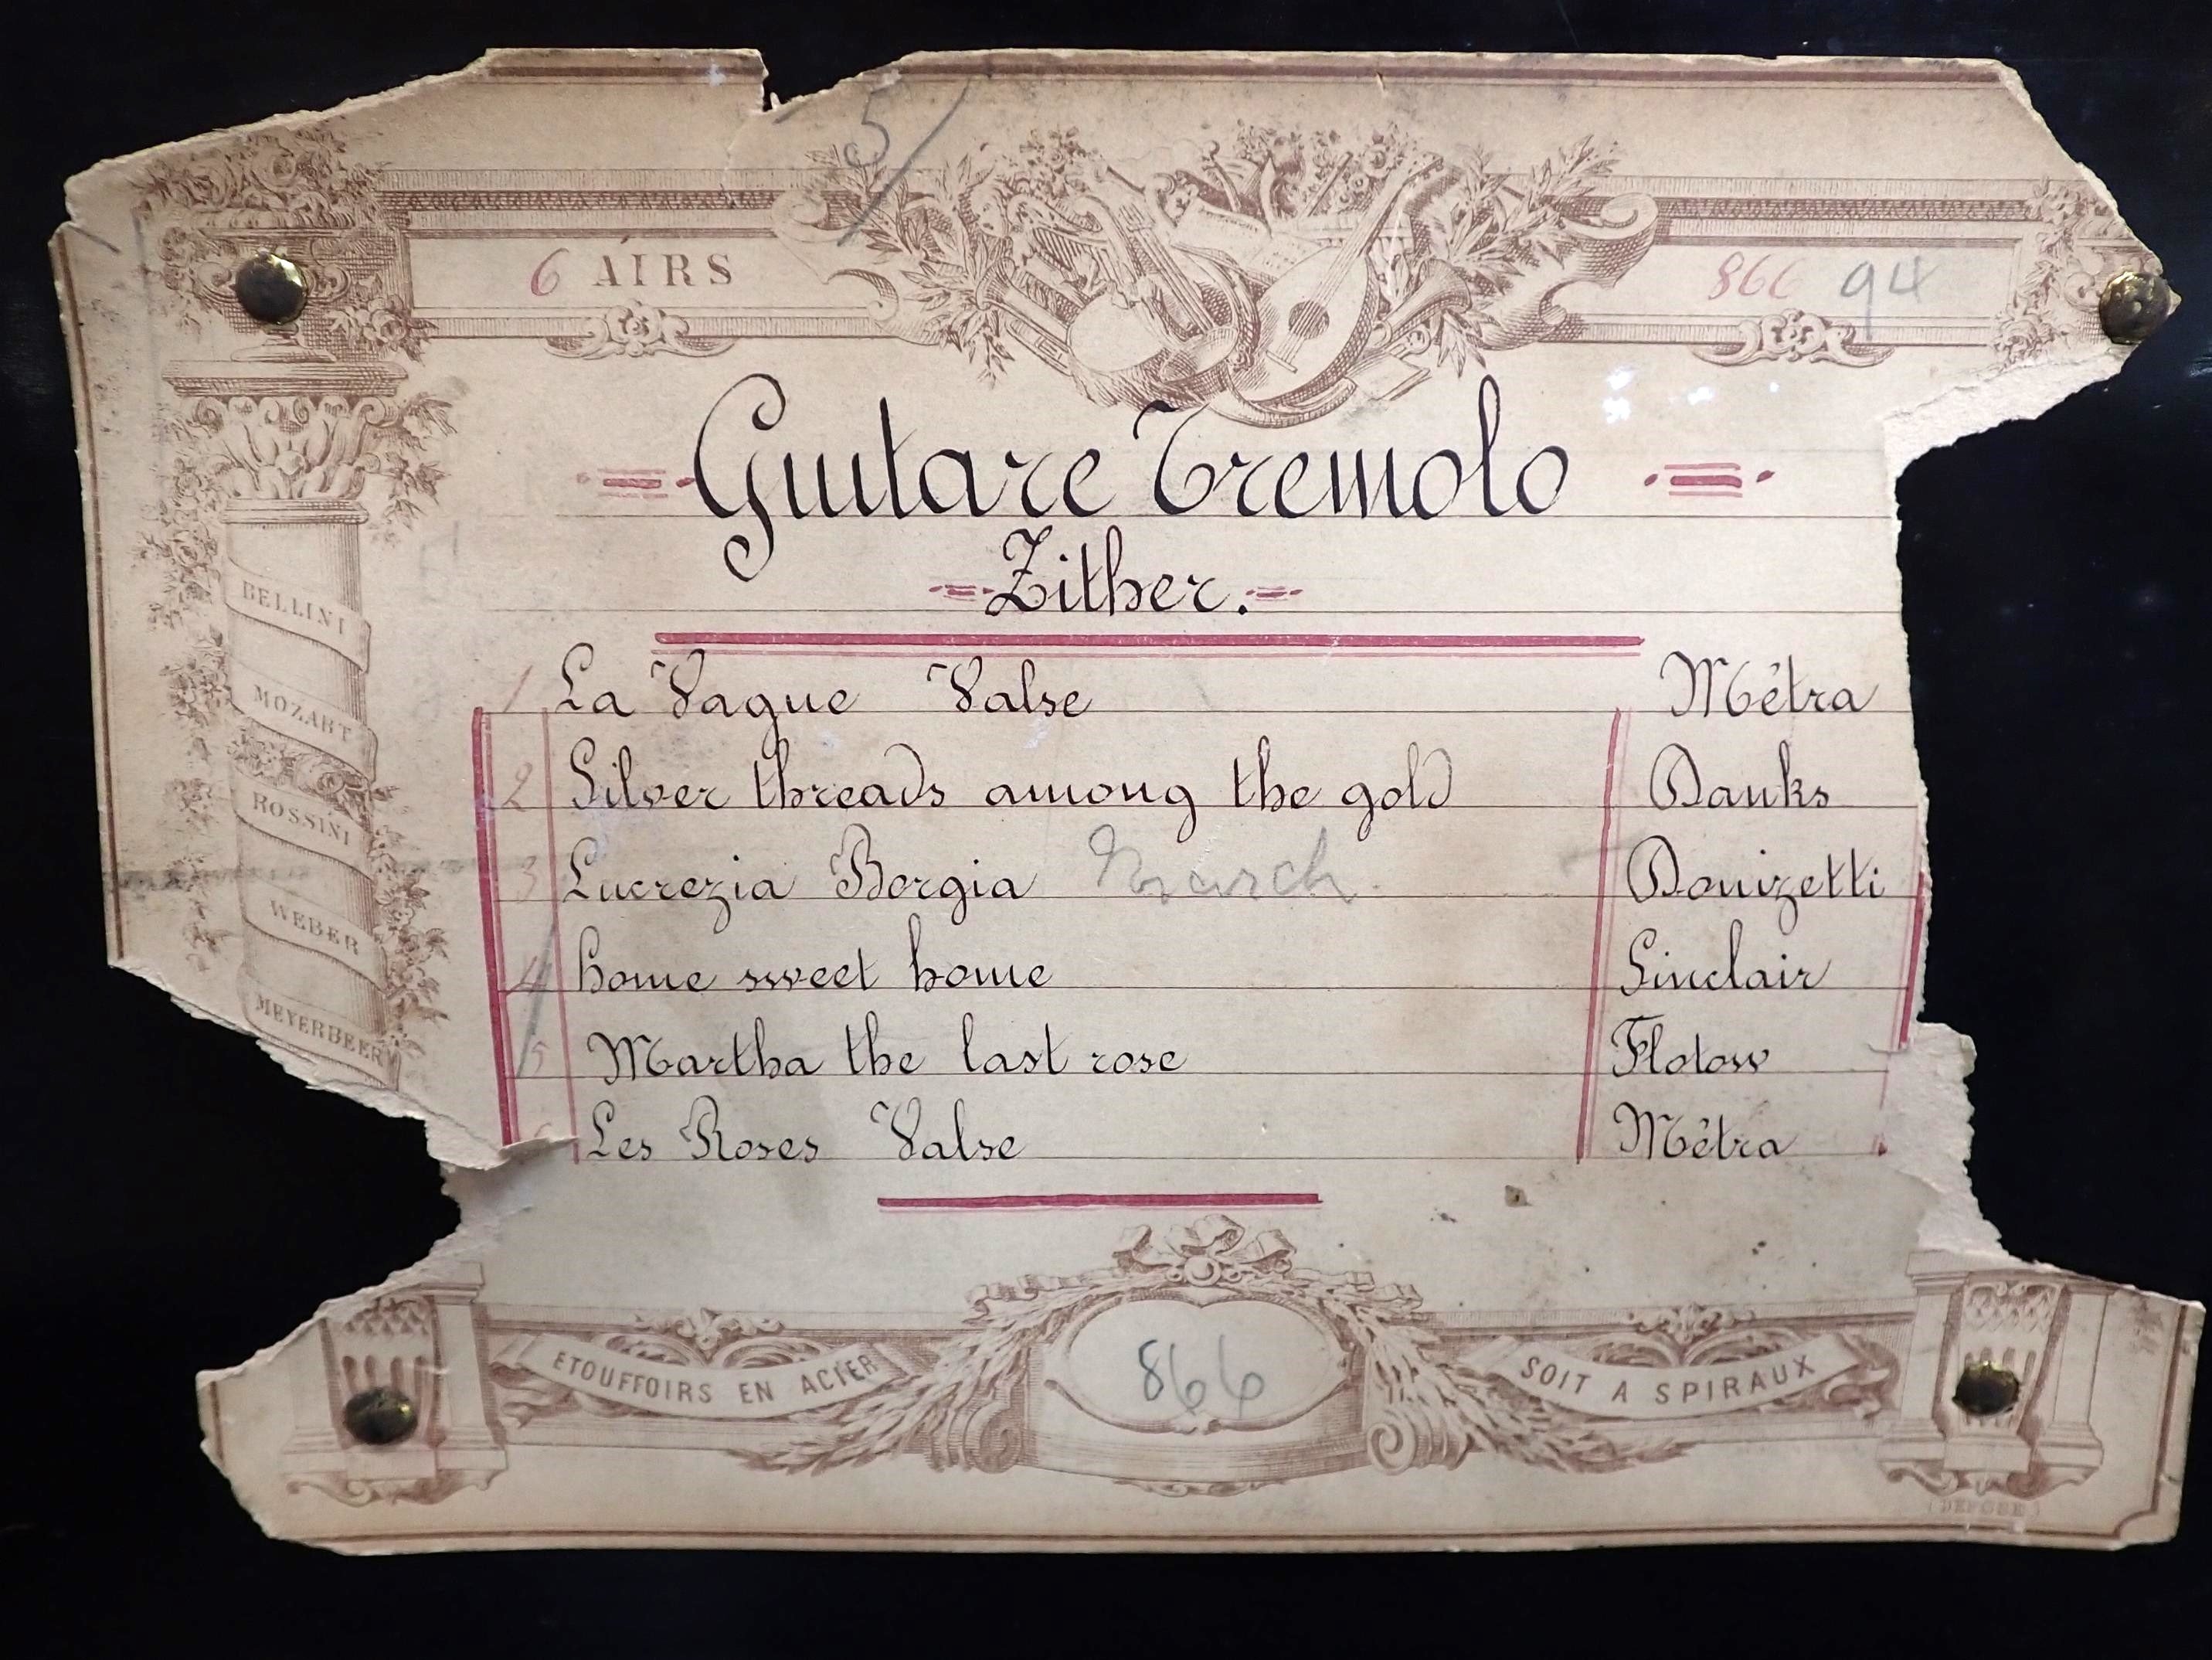 5
6 AIRS
866 94
Guitare Tremolo
Zither.
BELLINI
MOZART
ROSSINI
WEBER
MEYERBEER
1 La Vague Valse Métra
2 Silver threads among the gold Danks
3 Lucrezia Borgia March. Donizetti
4 home sweet home Sinclair
5 Martha the last rose Flotow
6 Les Roses Valse Métra
ETOUFFOIRS EN ACIER
866
SOIT A SPIRAUX
(DEPOSE)